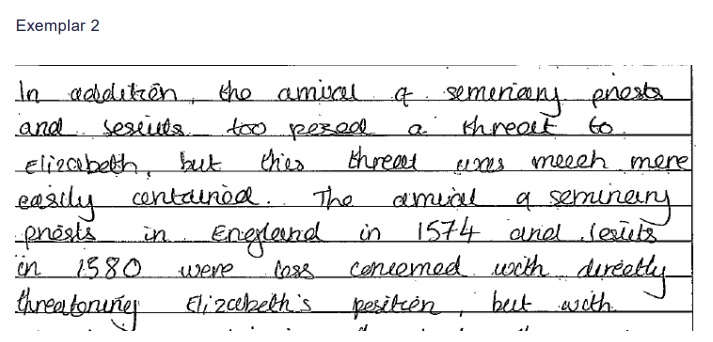 Exemplar 2
In addition, the arrival of semeniary priests
and Jesuits too posed a threat to
Elizabeth, but this threat was much more
easily contained. The arrival of seminary
priests in England in 1574 and Jesuits
in 1580 were less concerned with directly
threatening Elizabeth's position, but with